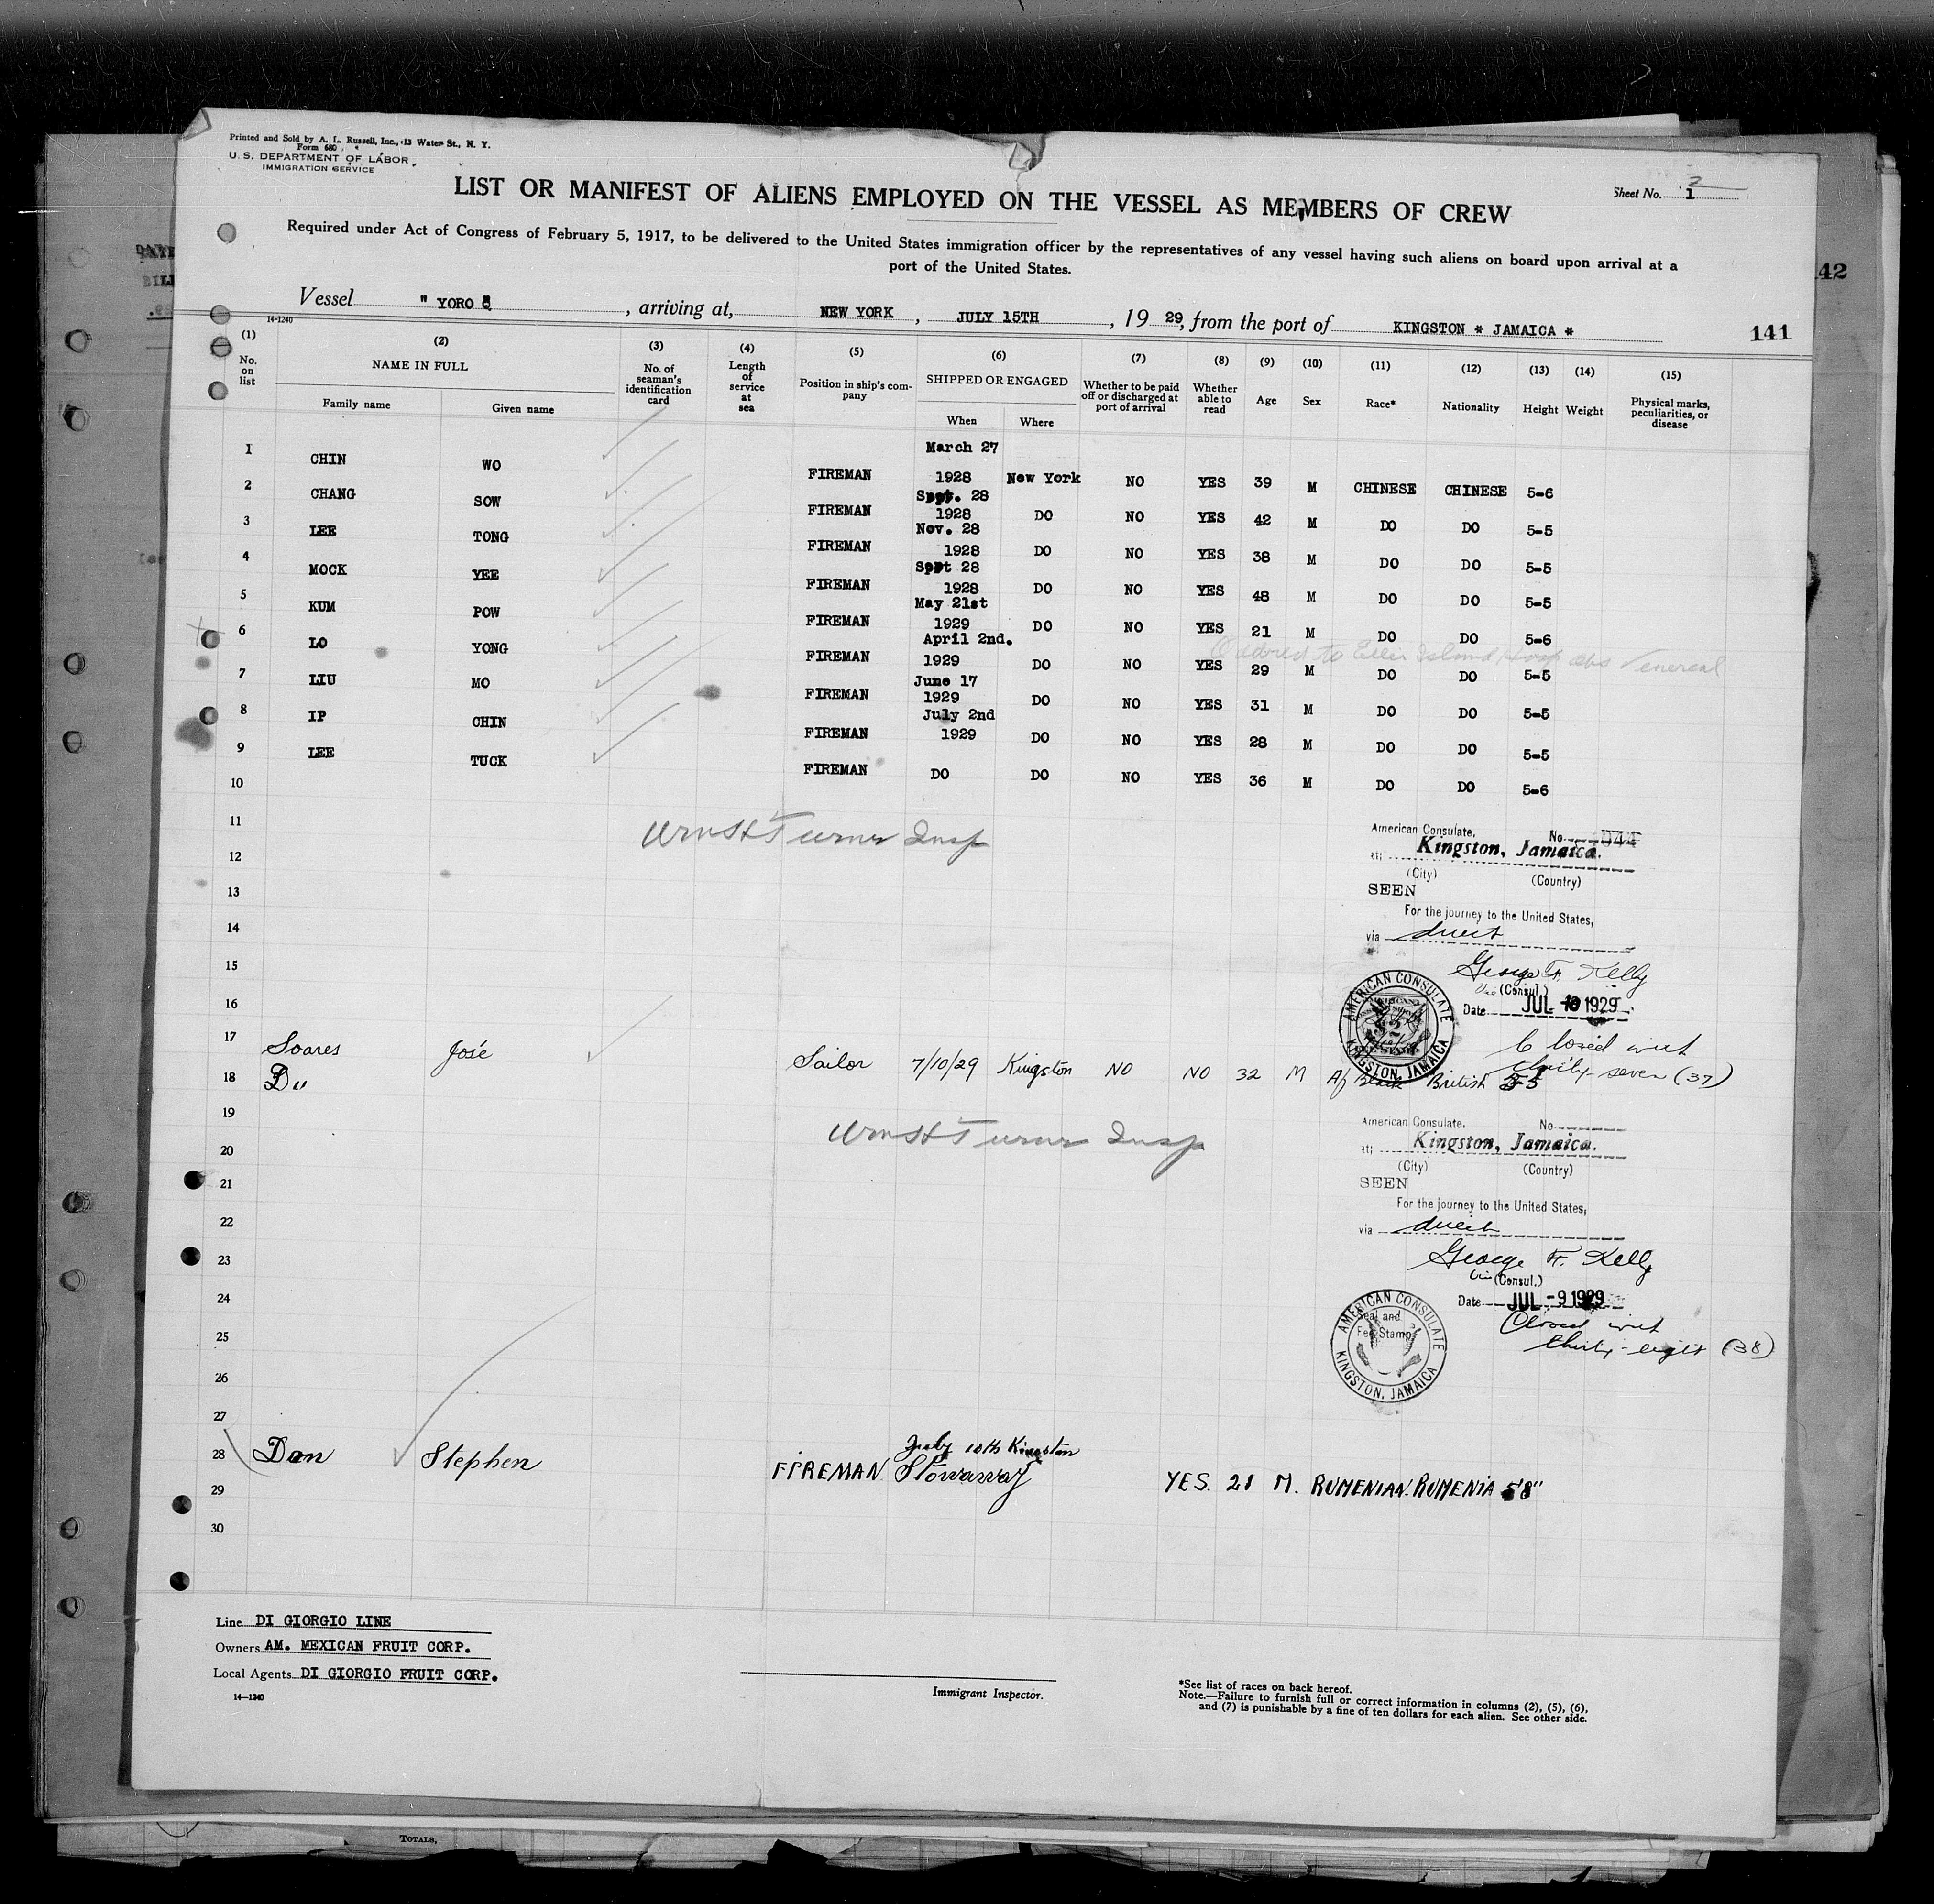 Printed and Sold by A. L. Russell, Inc., 13 Water St., N. Y.
Form 680
U. S. DEPARTMENT OF LABOR
IMMIGRATION SERVICE
Sheet No. 1 2
LIST OR MANIFEST OF ALIENS EMPLOYED ON THE VESSEL AS MEMBERS OF CREW
Required under Act of Congress of February 5, 1917, to be delivered to the United States immigration officer by the representatives of any vessel having such aliens on board upon arrival at a
port of the United States.
42
Vessel " YORO ", arriving at, NEW YORK, JULY 15TH, 19 29, from the port of KINGSTON * JAMAICA *
141
14-1240
(1) (2) (3) (4) (5) (6) (7) (8) (9) (10) (11) (12) (13) (14) (15)
No. on list NAME IN FULL Family name Given name No. of seaman's identification card Length of service at sea Position in ship's company SHIPPED OR ENGAGED When Where Whether to be paid off or discharged at port of arrival Whether able to read Age Sex Race* Nationality Height Weight Physical marks, peculiarities, or disease
1 CHIN WO FIREMAN March 27 1928 New York NO YES 39 M CHINESE CHINESE 5-6
2 CHANG SOW FIREMAN Sept. 28 1928 DO NO YES 42 M DO DO 5-5
3 LEE TONG FIREMAN Nov. 28 1928 DO NO YES 38 M DO DO 5-5
4 MOCK YEE FIREMAN Sept 28 1928 DO NO YES 48 M DO DO 5-5
5 KUM POW FIREMAN May 21st 1929 DO NO YES 21 M DO DO 5-6
Ordered to Ellis Island Hosp Venereal
6 LO YONG FIREMAN April 2nd. 1929 DO NO YES 29 M DO DO 5-5
7 LIU MO FIREMAN June 17 1929 DO NO YES 31 M DO DO 5-5
8 IP CHIN FIREMAN July 2nd 1929 DO NO YES 28 M DO DO 5-5
9 LEE TUCK FIREMAN DO DO NO YES 36 M DO DO 5-6
10
11
Turner Insp
12
13
14
15
16
American Consulate, No. 044
at Kingston, Jamaica.
(City) (Country)
SEEN
For the journey to the United States,
via direct
George F. Kelly
Vice (Consul.)
Date JUL 10 1929
AMERICAN CONSULATE KINGSTON, JAMAICA
Closed with
thirty-seven (37)
17 Soares José Sailor 7/10/29 Kingston NO NO 32 M Af Black British 5-5
18
19
Turner Insp
20
21
22
23
24
25
26
27
American Consulate, No.
at Kingston, Jamaica.
(City) (Country)
SEEN
For the journey to the United States,
via direct
George F. Kelly
Vice (Consul.)
Date JUL -9 1929
AMERICAN CONSULATE KINGSTON, JAMAICA
Seal and
Fee Stamp
Closed with
thirty-eight (38)
28 Dan Stephen FIREMAN July 10th Kingston Stowaway YES. 21 M. RUMENIAN. RUMENIA 5'8"
29
30
Line DI GIORGIO LINE
Owners AM. MEXICAN FRUIT CORP.
Local Agents DI GIORGIO FRUIT CORP.
14-1240
Immigrant Inspector.
*See list of races on back hereof.
Note.—Failure to furnish full or correct information in columns (2), (5), (6),
and (7) is punishable by a fine of ten dollars for each alien. See other side.
TOTALS,